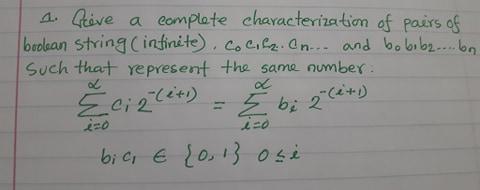 1. Give a complete characterization of pairs of
boolean string (infinite). c₀c₁c₂..cₙ... and b₀b₁b₂....bₙ
such that represent the same number:
∑_{i=0}^{∝} cᵢ 2^{-(i+1)} = ∑_{i=0}^{∝} bᵢ 2^{-(i+1)}
bᵢ cᵢ ∈ {0,1} 0 ≤ i